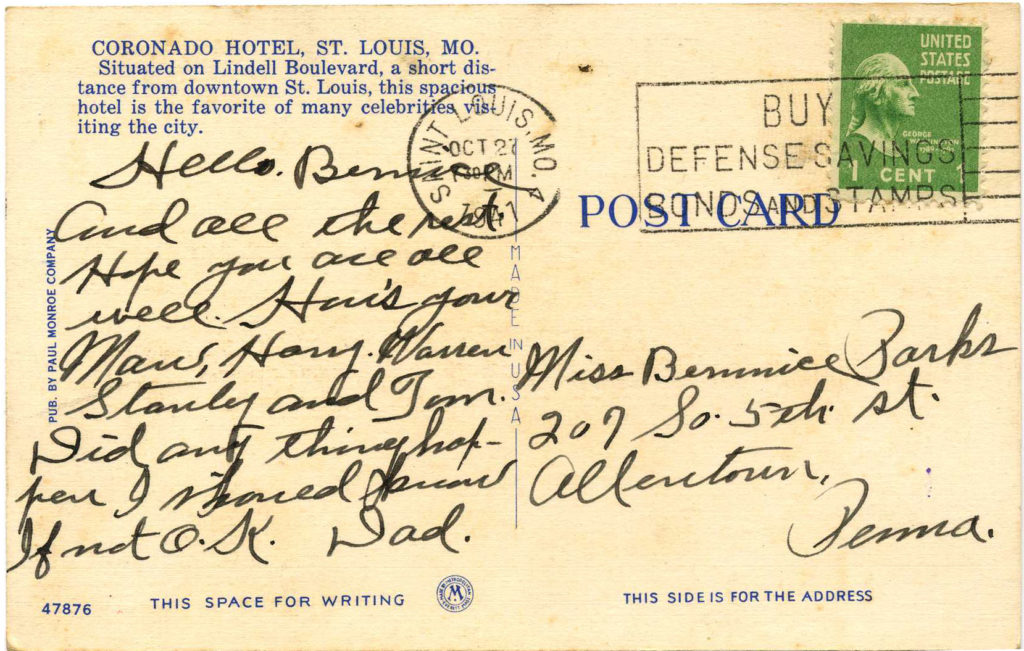 CORONADO HOTEL, ST. LOUIS, MO.
Situated on Lindell Boulevard, a short dis-
tance from downtown St. Louis, this spacious
hotel is the favorite of many celebrities vis-
iting the city.
Hello. Bernice
And all the rest,
Hope you are all
well. How's your
Man, Harry. Warren
Stanley and Tom.
Did any thing hap-
pen I should know
If not O.K. Dad.
PUB. BY PAUL MONROE COMPANY
47876
THIS SPACE FOR WRITING
MADE IN USA
SAINT LOUIS, MO.
OCT 27
30 PM
1941
BUY
DEFENSE SAVINGS
BONDS AND STAMPS
UNITED
STATES
POSTAGE
GEORGE
WASHINGTON
1 CENT
POST CARD
Miss Bernnice Parks
207 So. 5th. st.
Allentown,
Penna.
THIS SIDE IS FOR THE ADDRESS